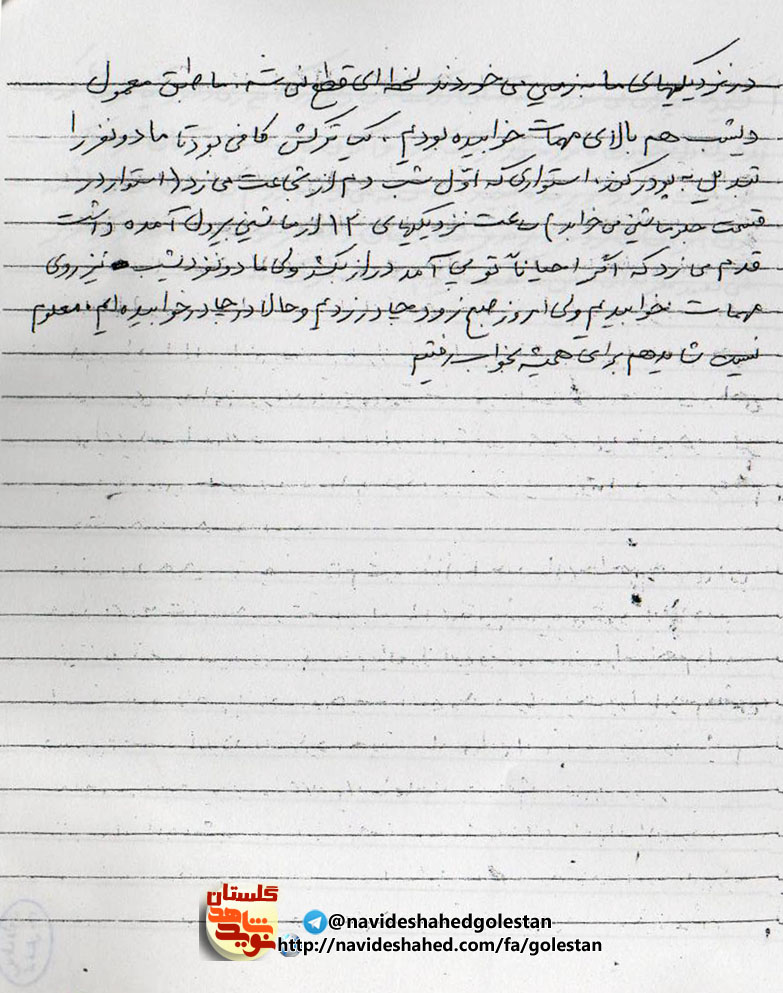 در نزدیکیهای ما به زمین می خوردند لحظه ای قطع نمی شد. ما طبق معمول
دیشب هم بالای مهمات خوابیده بودیم. یک ترکش کافی بود تا ما دو نفر را
تبدیل به پودر کند. استواری که اوّل شب دم از شجاعت می زد (استوار در
قسمت جلو ماشین می خوابد) ساعت نزدیکیهای ۱۲ از ماشین بیرون آمده داشت
قدم می زد که اگر احیاناً توپی آمد دراز بکشد ولی ما دو نفر دیشب نیز روی
مهمات خوابیدیم ولی امروز صبح زود چادر زدیم و حالا در چادر خوابیده ایم. معلوم
نیست شاید هم برای همیشه بخواب رفتیم
گلستان
نوید شاهد
@navideshahedgolestan
http://navideshahed.com/fa/golestan